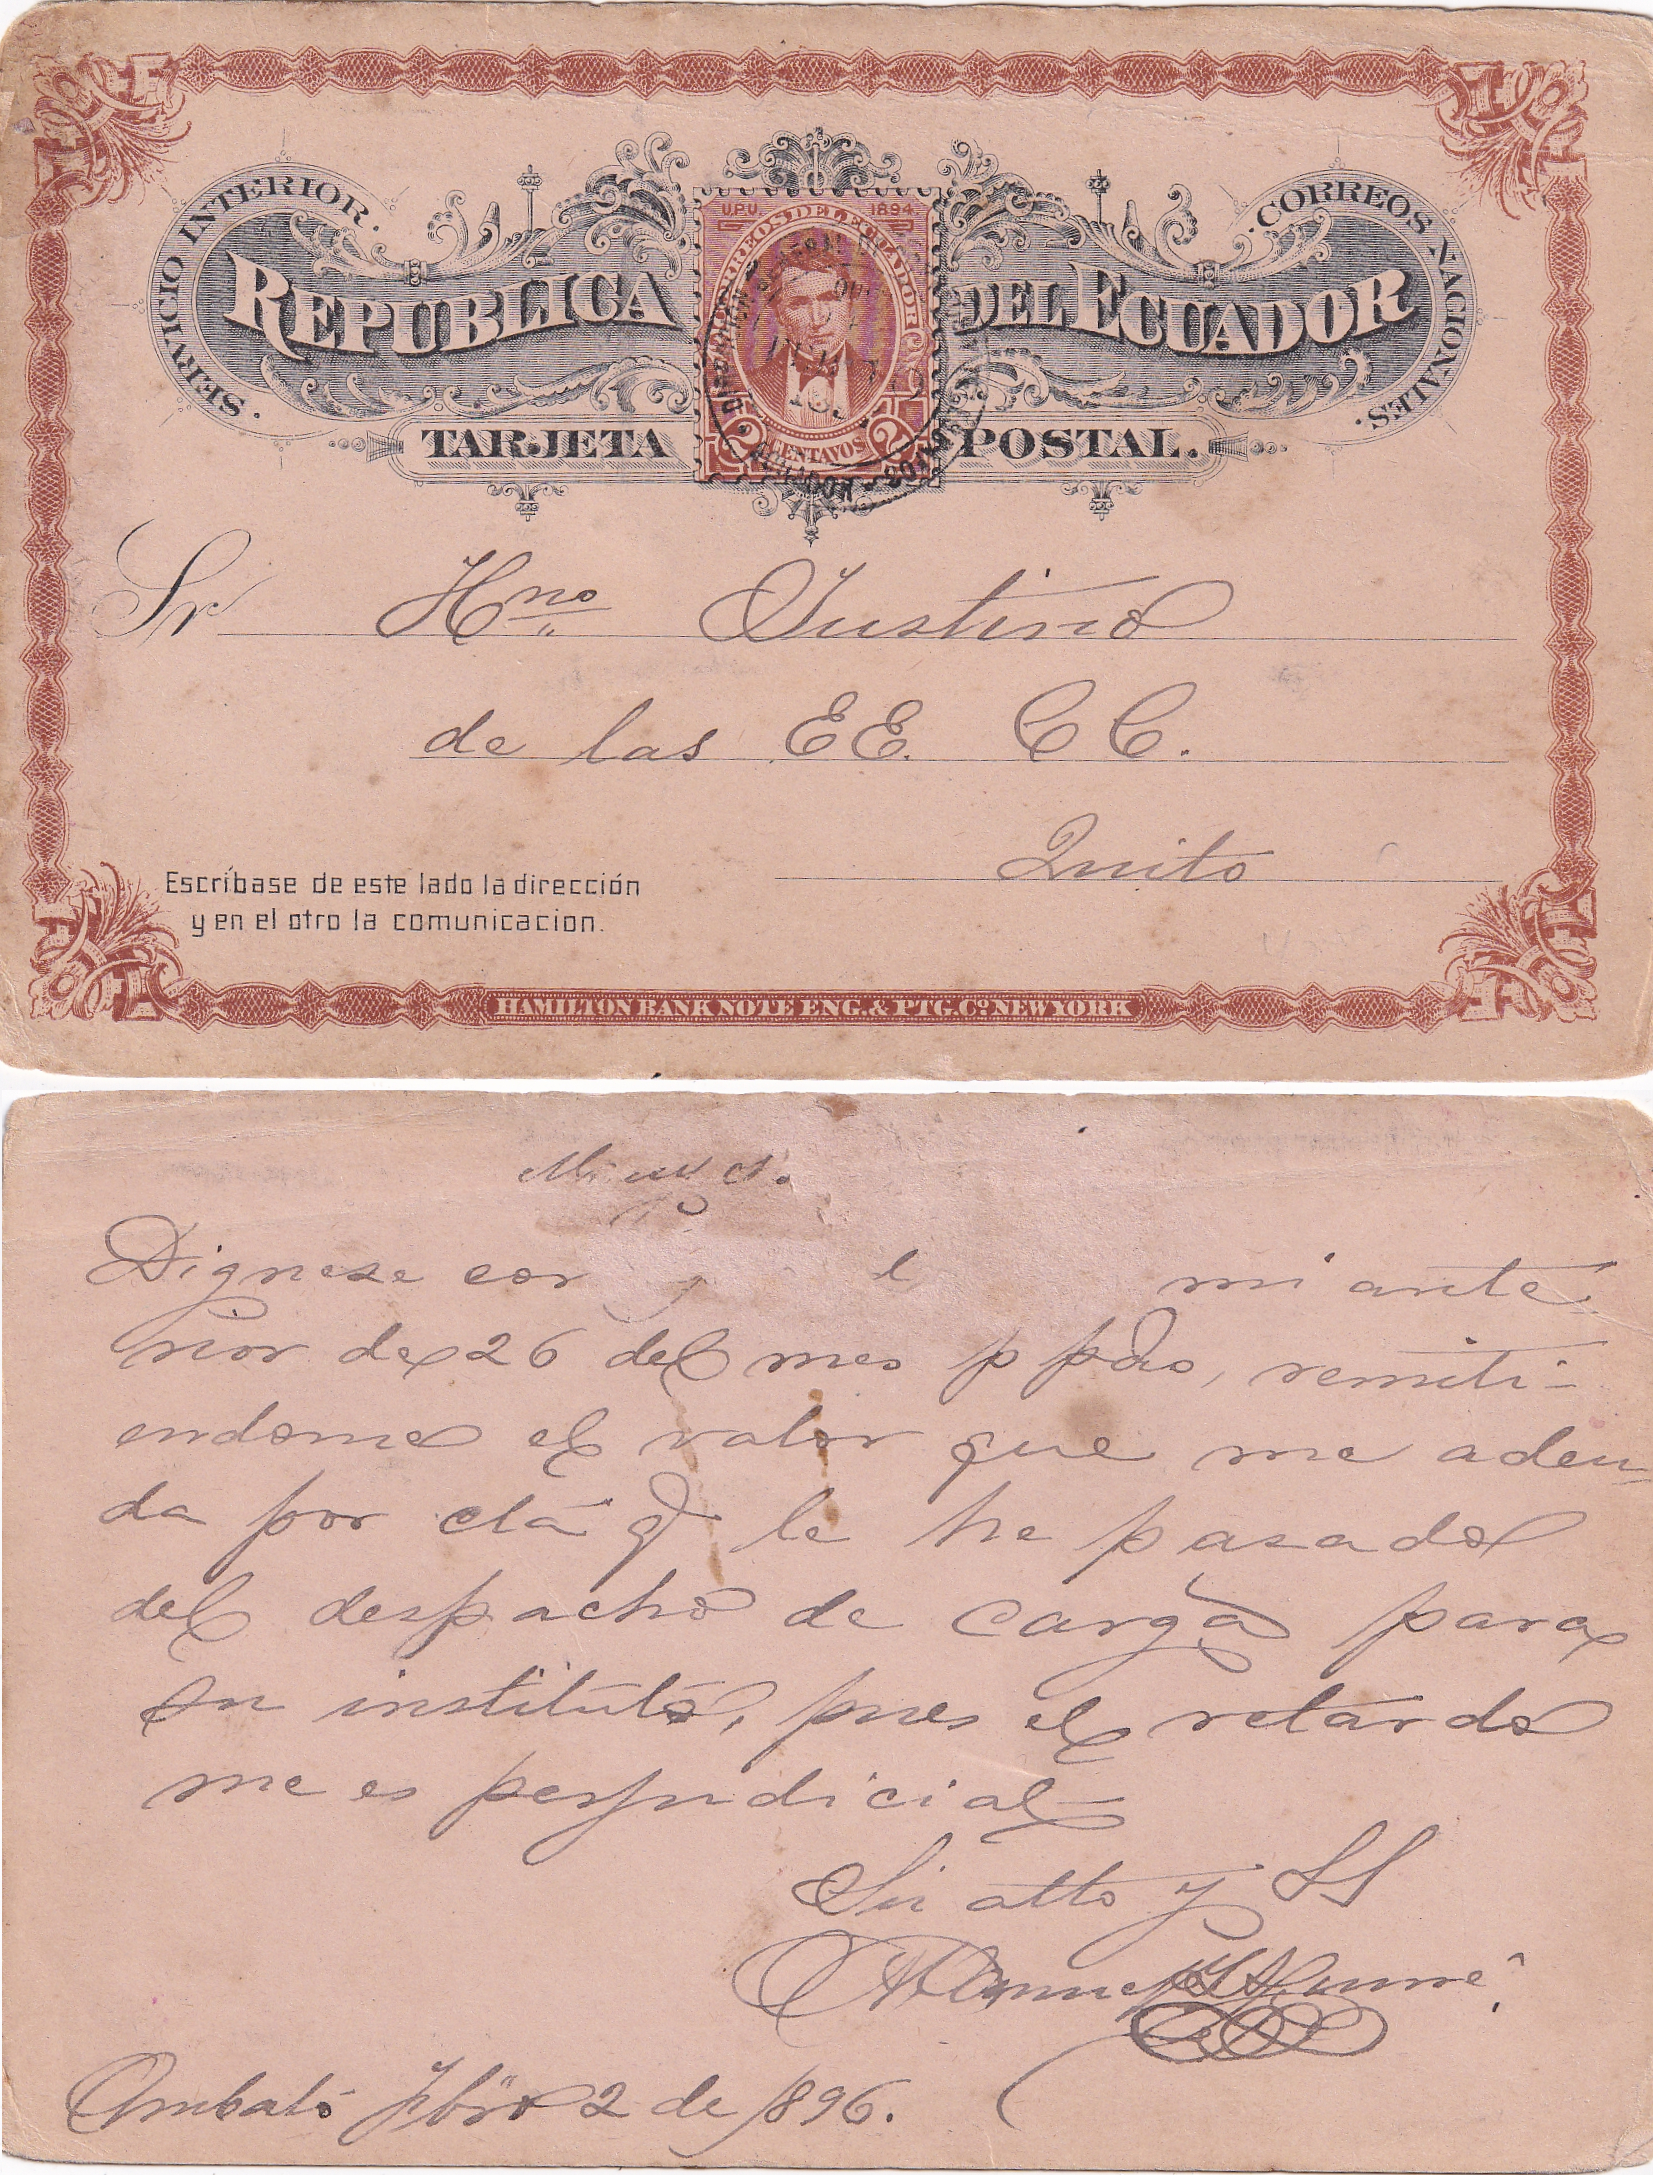 SERVICIO INTERIOR.
CORREOS NACIONALES.
REPUBLICA DEL ECUADOR
U.P.U. 1894
CORREOS DEL ECUADOR
2 CENTAVOS 2
TARJETA POSTAL.
Sr Hno. Justino
de las EE. CC.
Quito
Escríbase de este lado la dirección
y en el otro la comunicacion.
HAMILTON BANK NOTE ENG. & PTG. Co. NEW YORK
Dignese mi ante
rior de 26 del mes p ppdo, remiti-
endome el valor que me adeu-
da por cta q le he pasado
del despacho de carga para
su instituto, pues el retardo
me es perjudicial
Su atto y SS
Ambato Fbro 2 de 1896.